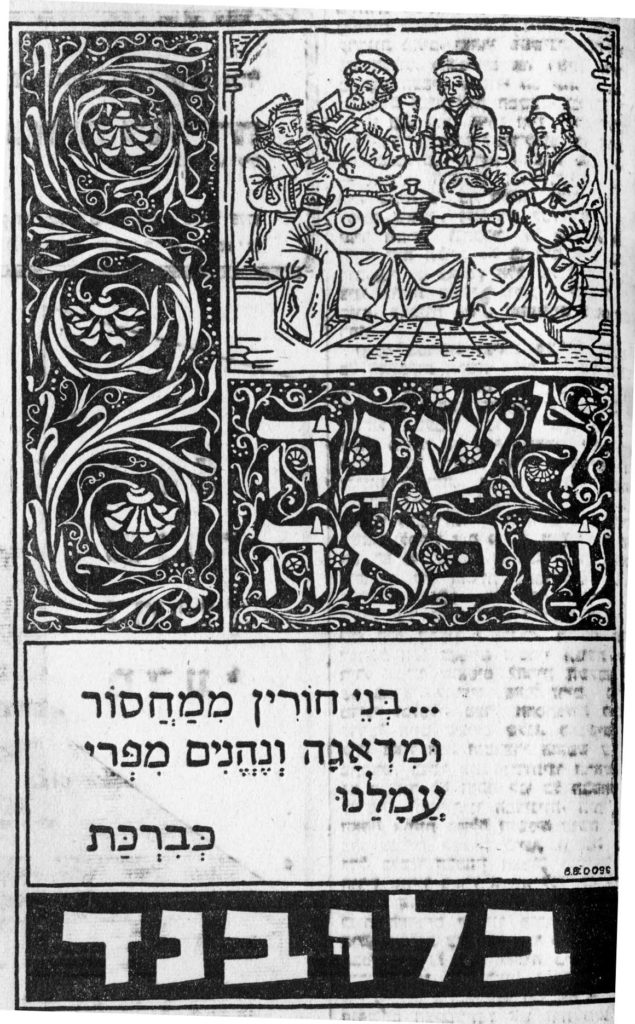 לְשָׁנָה
הַבָּאָה
...בְּנֵי חוֹרִין מִמַּחֲסוֹר
וּמִדְּאָגָה וְנֶהֱנִים מִפְּרִי
עֲמָלֵנוּ
כְּבִרְכַּת
בלובנד